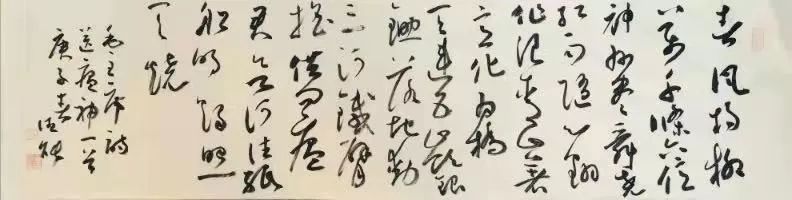 春风杨柳
万千條六億
神州尽舜尧
红雨随心翻
作浪青山着
意化为橋
天连五岭銀
鋤落地動
三河鐵臂
摇借问瘟
君欲何往紙
船明烛照
天燒
毛主席诗
送瘟神一首
庚子春